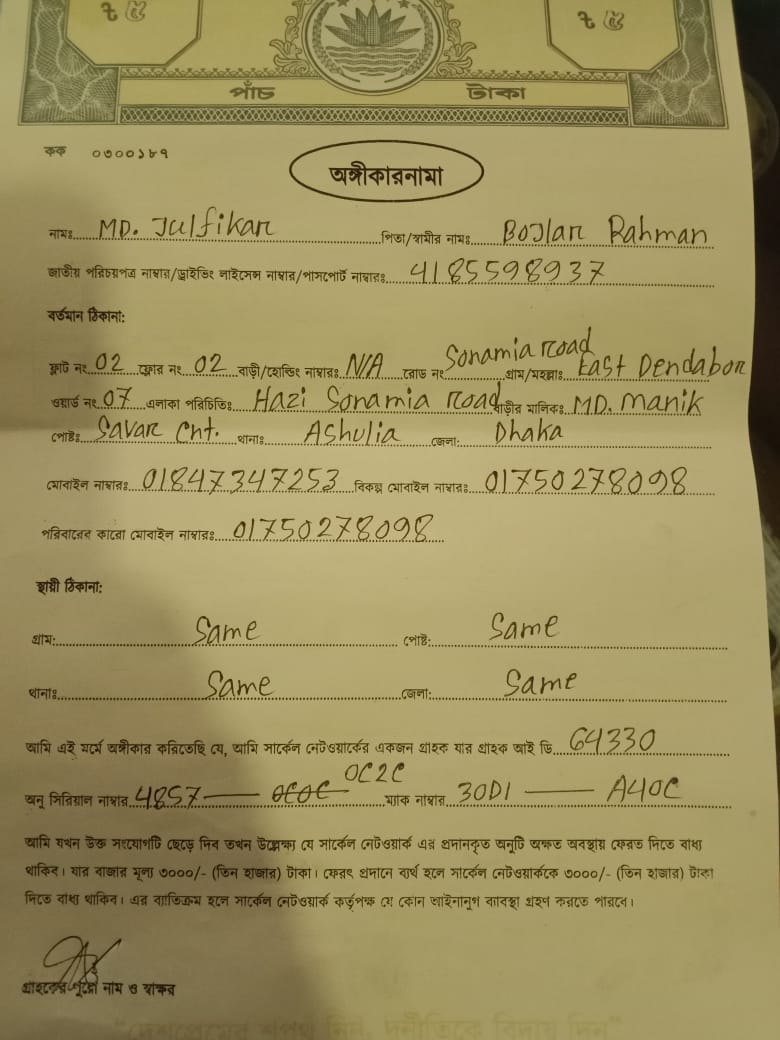 ৳ ৫ ৳ ৫
পাঁচ টাকা
কক ০৩০০১৮৭
অঙ্গীকারনামা
নামঃ MD. Julfikar পিতা/স্বামীর নামঃ Bojlar Rahman
জাতীয় পরিচয়পত্র নাম্বার/ড্রাইভিং লাইসেন্স নাম্বার/পাসপোর্ট নাম্বারঃ 4185598937
বর্তমান ঠিকানা:
ফ্লাট নং 02 ফ্লোর নং 02 বাড়ী/হোল্ডিং নাম্বারঃ N/A রোড নং Sonamia road গ্রাম/মহল্লাঃ East Dendabor
ওয়ার্ড নং 07 এলাকা পরিচিতিঃ Hazi Sonamia Road বাড়ীর মালিকঃ MD. Manik
পোষ্টঃ Savar Cnt. থানাঃ Ashulia জেলা: Dhaka
মোবাইল নাম্বারঃ 01847347253 বিকল্প মোবাইল নাম্বারঃ 01750278098
পরিবারের কারো মোবাইল নাম্বারঃ 01750278098
স্থায়ী ঠিকানা:
গ্রাম: Same পোষ্ট: Same
থানাঃ Same জেলা: Same
আমি এই মর্মে অঙ্গীকার করিতেছি যে, আমি সার্কেল নেটওয়ার্কের একজন গ্রাহক যার গ্রাহক আই ডি 64330
অনু সিরিয়াল নাম্বার 4857 — 0C2C ম্যাক নাম্বার 30D1 — A40C
আমি যখন উক্ত সংযোগটি ছেড়ে দিব তখন উল্লেক্ষ্য যে সার্কেল নেটওয়ার্ক এর প্রদানকৃত অনুটি অক্ষত অবস্থায় ফেরত দিতে বাধ্য
থাকিব। যার বাজার মূল্য ৩০০০/- (তিন হাজার) টাকা। ফেরৎ প্রদানে ব্যর্থ হলে সার্কেল নেটওয়ার্ককে ৩০০০/- (তিন হাজার) টাকা
দিতে বাধ্য থাকিব। এর ব্যতিক্রম হলে সার্কেল নেটওয়ার্ক কর্তৃপক্ষ যে কোন আইনানুগ ব্যবস্থা গ্রহণ করতে পারবে।
গ্রাহকের পুরো নাম ও স্বাক্ষর
"দেশপ্রেমের শপথ নিন, দুর্নীতিকে বিদায় দিন"